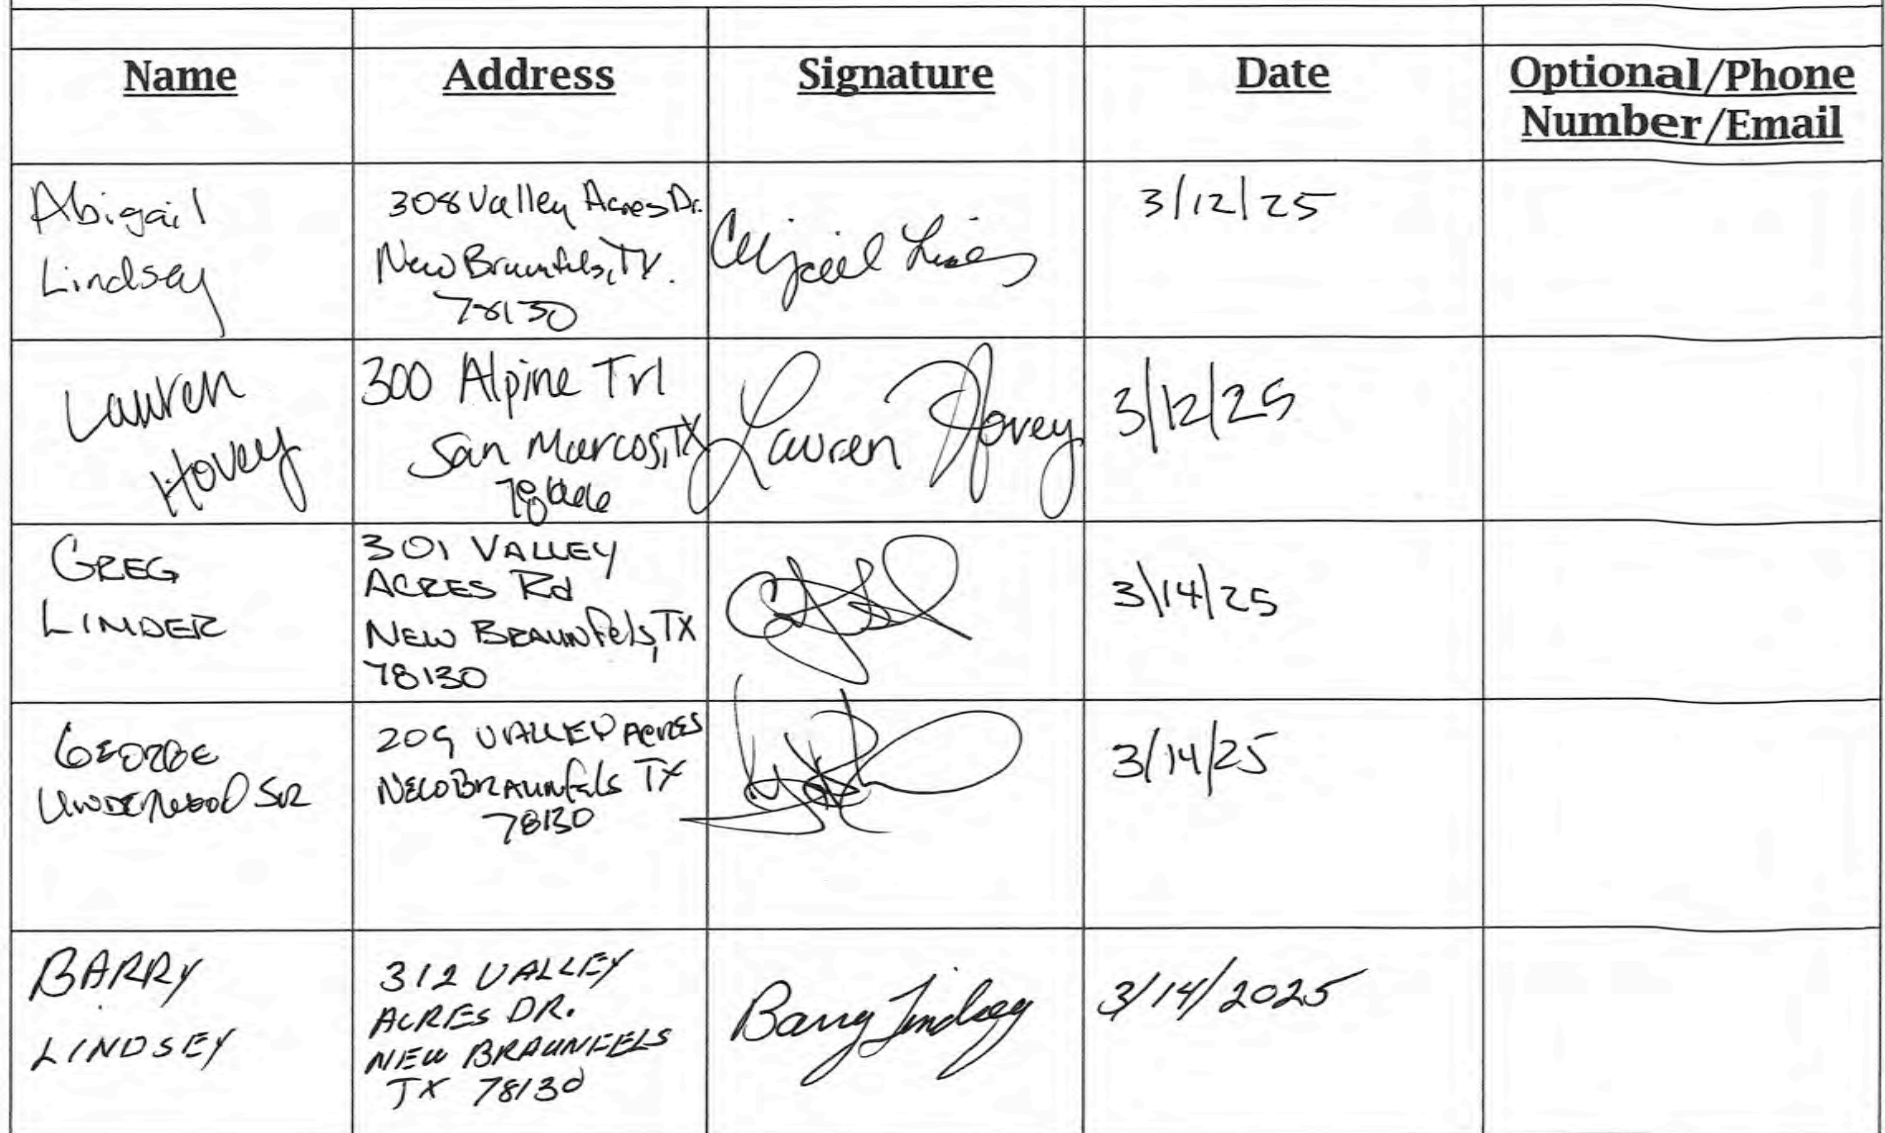 Name
Address
Signature
Date
Optional/Phone
Number/Email
Abigail
Lindsey
308 Valley Acres Dr.
New Braunfels, TX.
78130
3/12/25
Lauren
Hovey
300 Alpine Trl
San Marcos, TX
78666
Lauren Hovey
3/12/25
GREG
LINDER
301 VALLEY
ACRES Rd
NEW BRAUNfels, TX
78130
3/14/25
GEORGE
UNDERWOOD SR
209 VALLEY ACRES
NEW BRAUNfels TX
78130
3/14/25
BARRY
LINDSEY
312 VALLEY
ACRES DR.
NEW BRAUNFELS
TX 78130
Barry Lindsey
3/14/2025